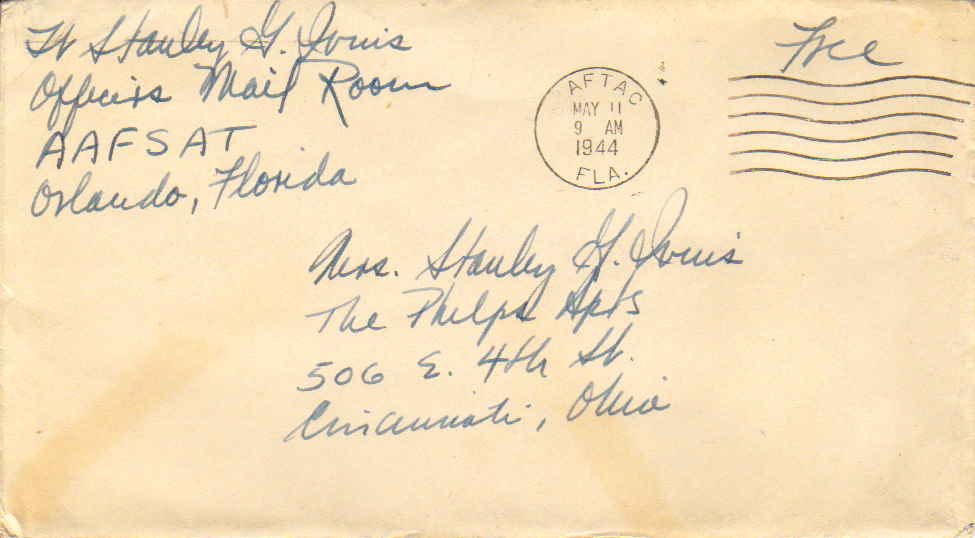 Lt Stanley G. Irvis
Officers Mail Room
AAFSAT
Orlando, Florida
AFTAC
MAY 11
9 AM
1944
FLA.
Free
Mrs. Stanley G. Irvis
The Phelps Apts
506 E. 4th St.
Cincinnati, Ohio